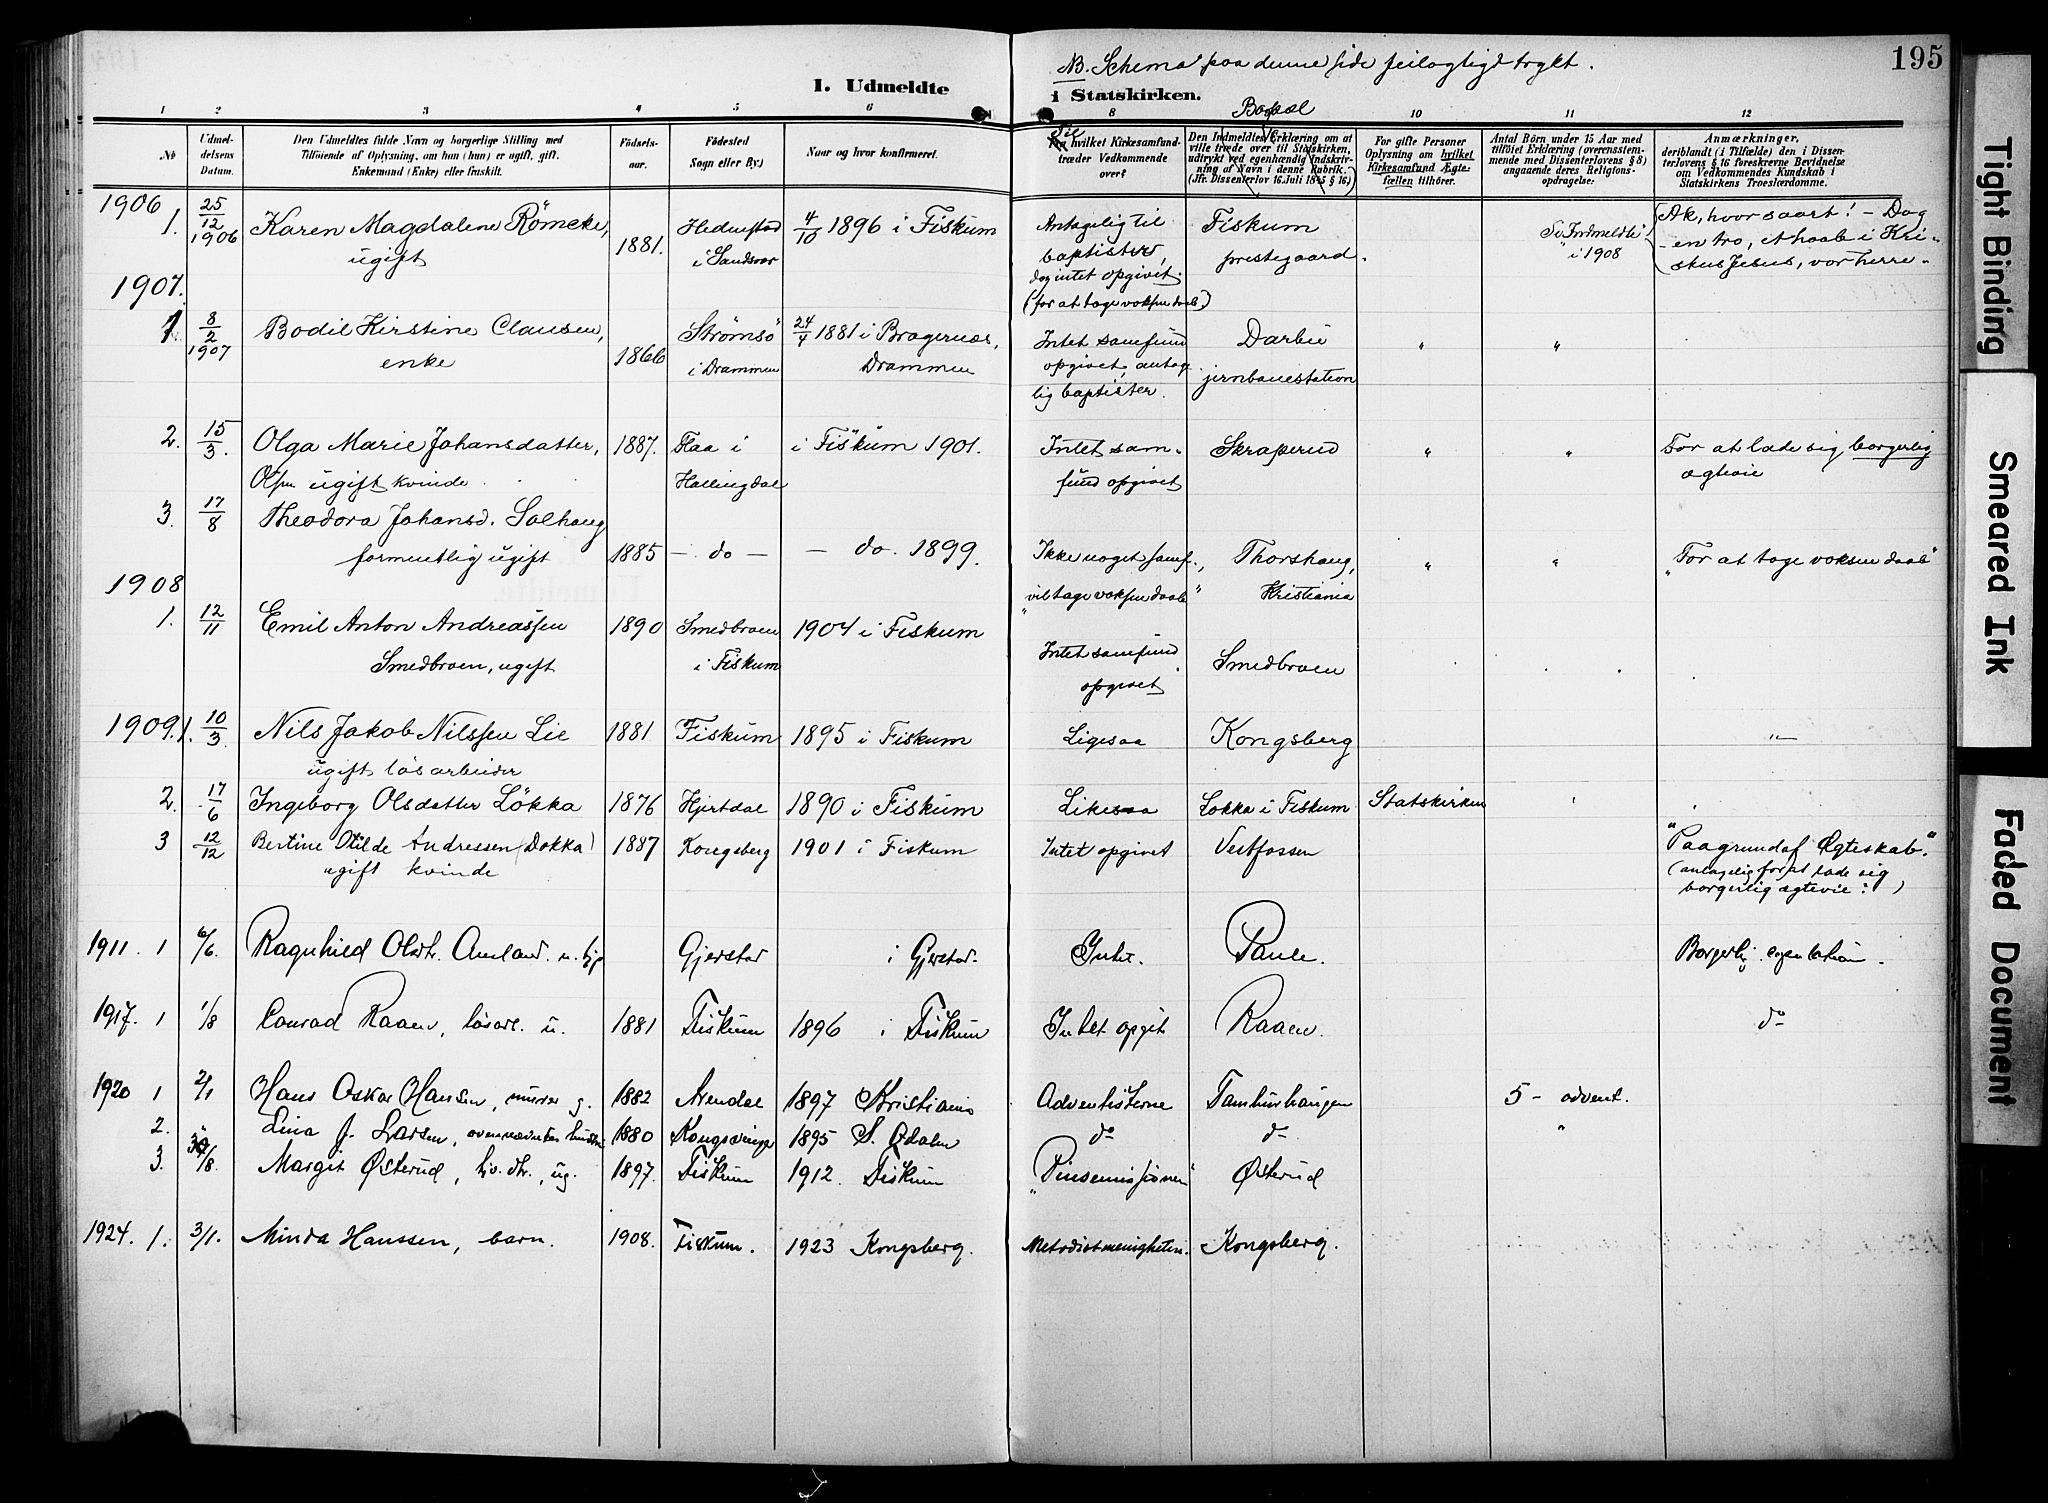 195
NB. Schema paa denne side feilagtigd trykt.
I. Udmeldte i Statskirken.
1 2 3 4 5 6 8 10 11 12
No
Udmeldelsens Datum.
Den Udmeldtes fulde Navn og borgerlige Stilling med
Tilføiende af Oplysning, om han (hun) er ugift, gift,
Enkemand (Enke) eller fraskilt.
Fødselsaar.
Fødested
Sogn eller By.)
Naar og hvor konfirmeret.
Til
hvilket Kirkesamfund
træder Vedkommende
over?
Bopæl
Den Indmeldtes Erklæring om at
ville træde over til Statskirken,
udtrykt ved egenhændig Indskrivning
af Navn i denne Rubrik.
(Jfr. Dissenterlov 16. Juli 1845 § 16.)
For gifte Personer
Oplysning om hvilket
Kirkesamfund Ægtefællen
tilhörer.
Antal Børn under 15 Aar med
tilföiet Erklæring (overensstemmende
med Dissenterlovens § 8)
angaaende deres Religionsopdragelse:
Anmærkninger,
deriblandt (i Tilfælde) den i Dissenterlovens
§ 16 foreskrevne Bevidnelse
om Vedkommendes Kundskab i
Statskirkens Troeslærdomme.
1906
1. 25/12 1906 Karen Magdalene Römcke, ugift 1881. Hedenstad i Sandsvær 4/10 1896 i Fiskum Antagelig til baptister, dog intet opgivet. (for at tage voksen daab.) Fiskum prestegaard. Se Indmeldte i 1908 Ak, hvor saart! - Dog en tro, et haab i Kristus Jesus, vor herre -
1907.
1 8/2 1907 Bodil Kirstine Clausen, enke 1866 Strømsö i Drammen 24/4 1881 i Bragernes, Drammen Intet samfund opgivet, antagelig baptister. Darbu jernbanestation " "
2. 15/3. Olga Marie Johansdatter, Olsen ugift kvinde 1887. Flaa i Hallingdal i Fiskum 1901. Intet samfund opgivet Skraperud " " For at lade sig borgerlig ægtevie
3. 17/8 Theodora Johansd. Solhaug formentlig ugift 1885 - do - - do. 1899. Ikke noget samf., "vil tage voksen daab" Thorshaug, Kristiania " " "For at tage voksen daab"
1908
1. 12/11 Emil Anton Andreassen Smedbroen, ugift 1890 Smedbroen i Fiskum 1904 i Fiskum Intet samfund opgivet Smedbroen
1909. 1. 10/3. Nils Jakob Nilssen Lie ugift løsarbeider 1881 Fiskum 1895 i Fiskum Ligesaa Kongsberg "
2. 17/6 Ingeborg Olsdatter Løkka 1876 Hjertdal 1890 i Fiskum Likesaa Løkka i Fiskum Statskirken
3 12/12 Bertine Otilde Andressen (Dokka) ugift kvinde 1887 Kongsberg 1901 i Fiskum Intet opgivet Vestfossen "Paa grund af Ægteskab." (antagelig for at lade sig borgerlig ægtevie:)
1911. 1 6/6. Ragnhild Olsdtr. Gjerstad i Gjerstad. Intet. Borgerlig
1917. 1 1/8 Conrad Raaen, løsarb. u. 1881 Fiskum 1896 i Fiskum Intet opgit Raaen. do
1920 1 2/1 Hans Oskar Hansen, murer g. 1882 Arendal 1897 Kristiania Adventisterne 5 - advent.
2. Lina J. Larsen, ovennævntes hustru 1880 Kongsvinger 1895 S. Odalen do do "
3. 30/8. Margit Østerud, ug. 1897. Fiskum 1912. Fiskum "Pinsemissionen" Østerud
1924. 1. 3/1. Minda Hanssen, barn. 1908. Fiskum. 1923 Kongsberg. Metodistmenigheten. Kongsberg.
Tight Binding
Smeared Ink
Faded Document